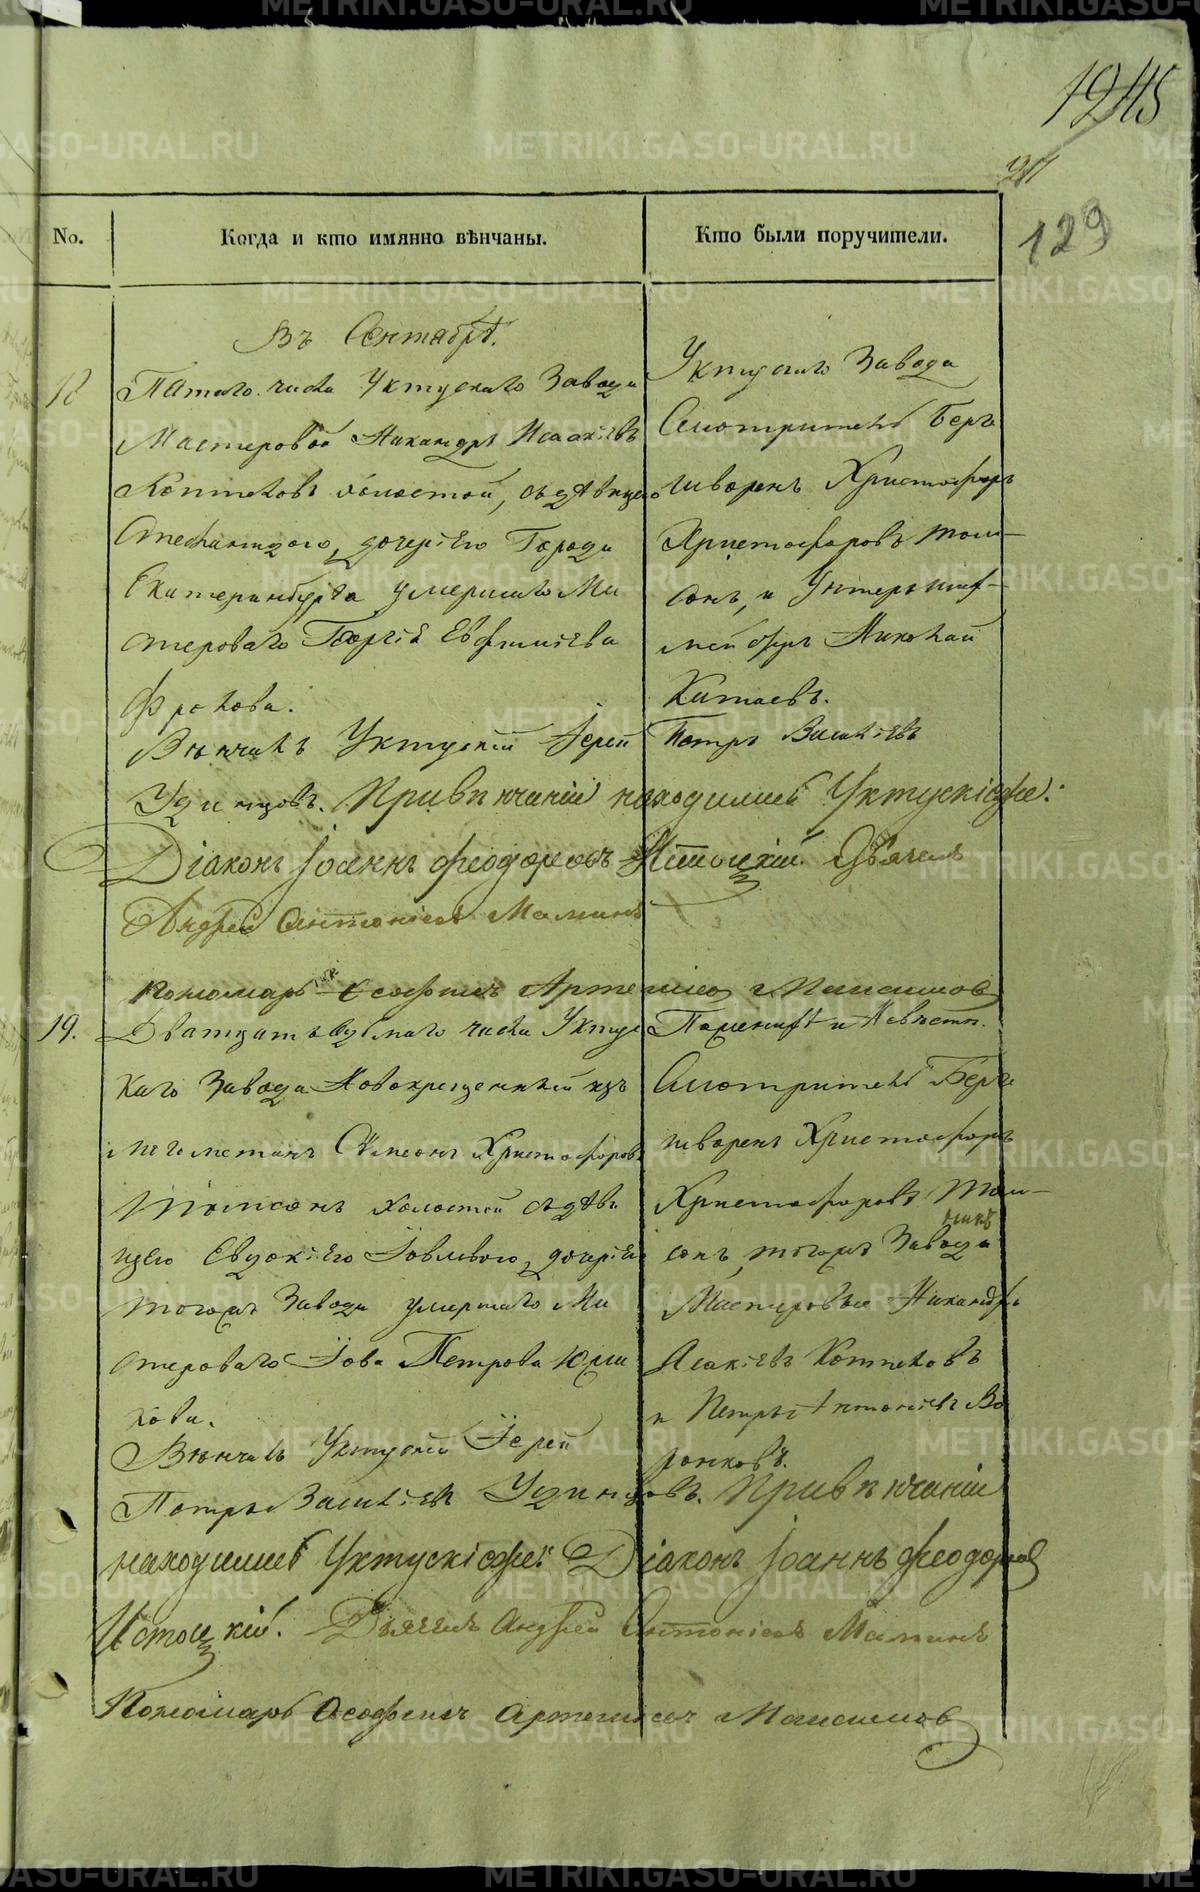 1245
211
129
No.
Когда и кто имянно вѣнчаны.
Кто были поручители.
Въ Сентябрѣ.
18
Пятаго числа Уктускаго Завода
Мастеровой Никандръ Исаакіевъ
Коптеловъ холостой, съ дѣвицею
дочерію Города
Екатеринбурга умершаго Ма
стероваго Георгія Евфиміева
Фролова.
Вѣнчалъ Уктускій Іерей Петръ Василіевъ
Удинцовъ. При вѣнчаніи находились Уктускіе же:
Діаконъ Іоаннъ Феодоровъ Истоцкій. Дьячекъ
Андрей Антоніевъ Маминъ
Пономарь Ософилъ Артеміевъ Максимовъ
Уктускаго Завода
Смотритель Берг
шворенъ Христофоръ
Христофоровъ Том-
сонъ, и Унтеръ шиф-
мейстеръ Николай
Китаевъ.
19.
Дватцать осьмаго числа Уктус
каго Завода Новокрещенный изъ
магометанъ Симеонъ Христофоровъ
Томсонъ холостой съ дѣви
цею Евдокіею Іовлевою, дочерію
тогожъ Завода умершаго Ма
стероваго Іова Петрова Юша
кова.
Вѣнчалъ Уктускій Іерей
Петръ Василіевъ Удинцовъ. При вѣнчаніи
находились Уктускіе же: Діаконъ Іоаннъ Феодоровъ
Истоцкій. Дьячекъ Андрей Антоніевъ Маминъ
Пономарь Ософилъ Артеміевъ Максимовъ
По женихѣ и невѣстѣ.
Смотритель Бергъ
шворенъ Христофоръ
Христофоровъ Том-
сонъ, тогожъ Завода
Мастеровые Никандръ
Исакіевъ Коптеловъ
и Петръ Антоніевъ Во
ронковъ.
METRIKI.GASO-URAL.RU